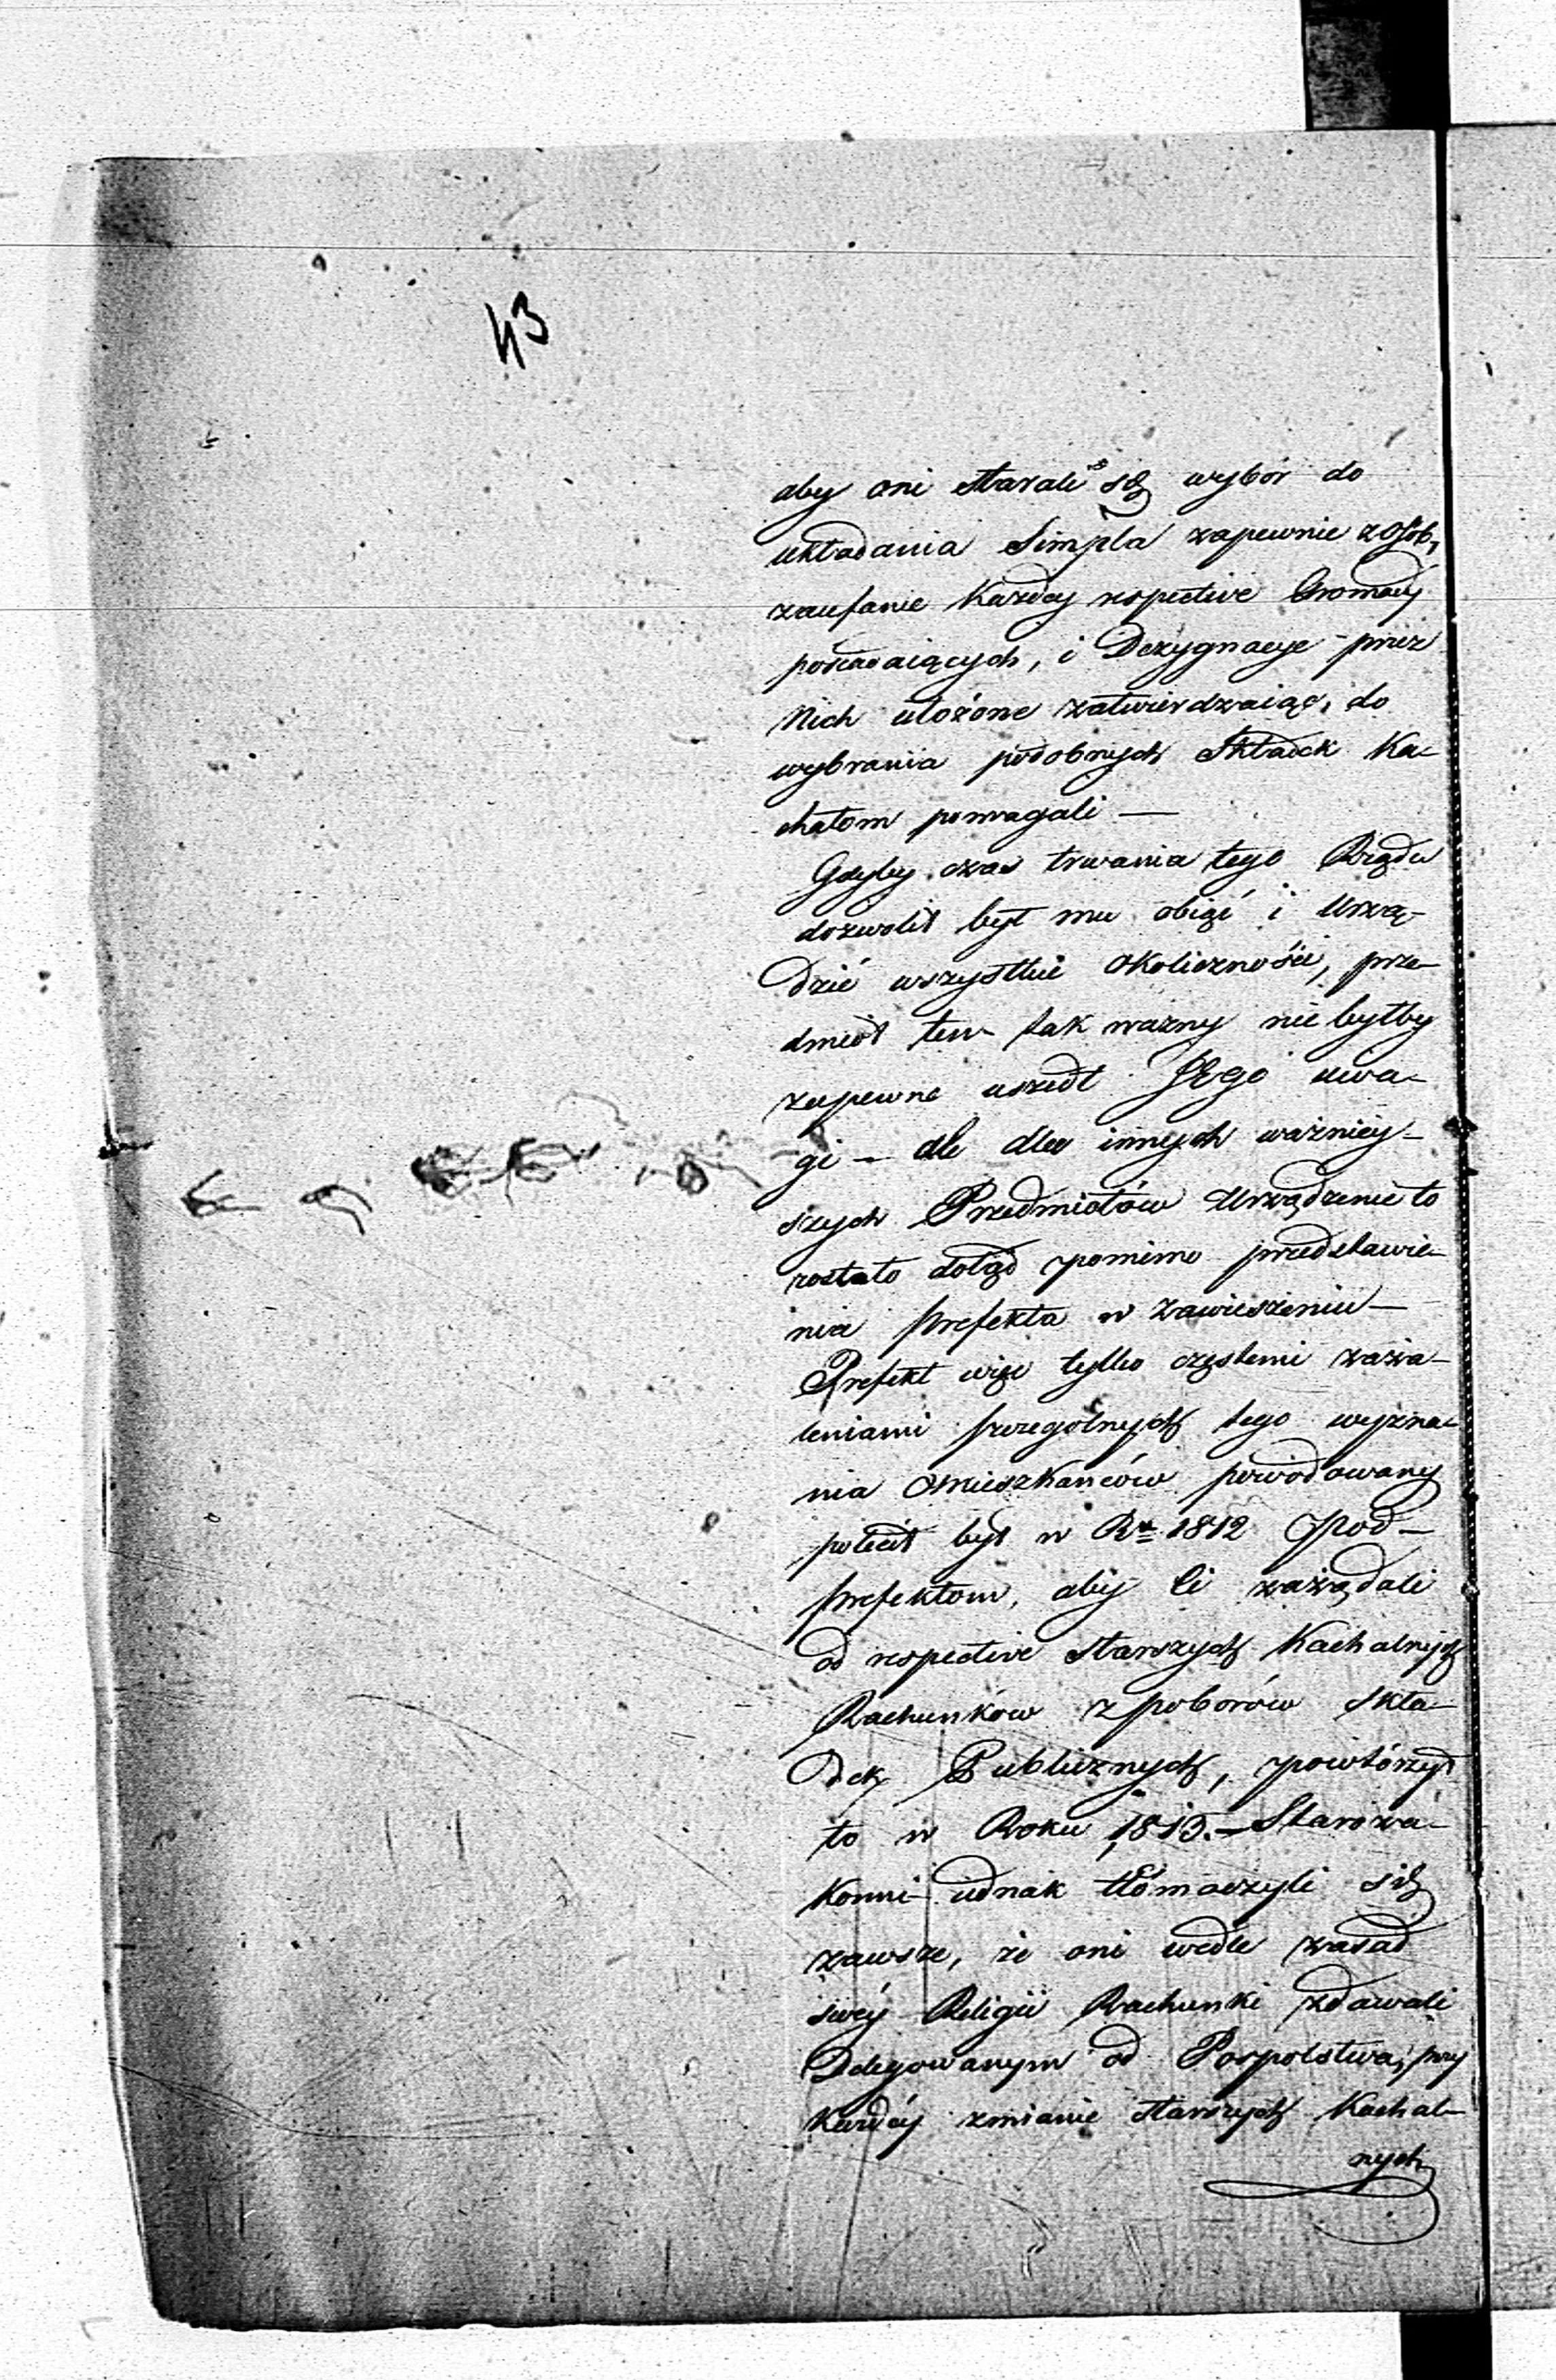 43
aby oni starali się wybór do
układania Simpla zapewnie z Osób,
zaufanie Każdey respective Gromady
posiadaiących, i Dezygnacye przez
Nich ułożone zatwierdzaiąc, do
wybrania podobnych Składek Ka-
chałom pomagali —
Gdyby czas trwania tego Rządu
dozwolił był mu obiąć i Urzą-
dzić wszystkie okoliczności, prze-
dmiot ten tak ważny nie byłby
zapewne uszedł JEgo uwa-
gi — ale dla innych ważniey-
szych Przedmiotów Urządzenie to
zostało dotąd pomimo przedstawie-
nia prefekta w zawieszeniu —
Prefekt więc tylko częstemi zaża-
leniami szczegolnych tego wyzna-
nia Mieszkańców powodowany
polecił był w Rᵘ 1812 Pod-
prefektom, aby Ci zażądali
od respective Starszych Kachalnych
Rachunków z poborów skła-
dek Publicznych, powtórzył
to w Roku 1813. — Starozа-
konni iednak tłómaczyli się
zawsze, że oni wedle zasad
swéy Religii Rachunki zdawali
Delegowanym od Pospolstwa, przy
Każdéy zmianie starszych Kachal-
nych